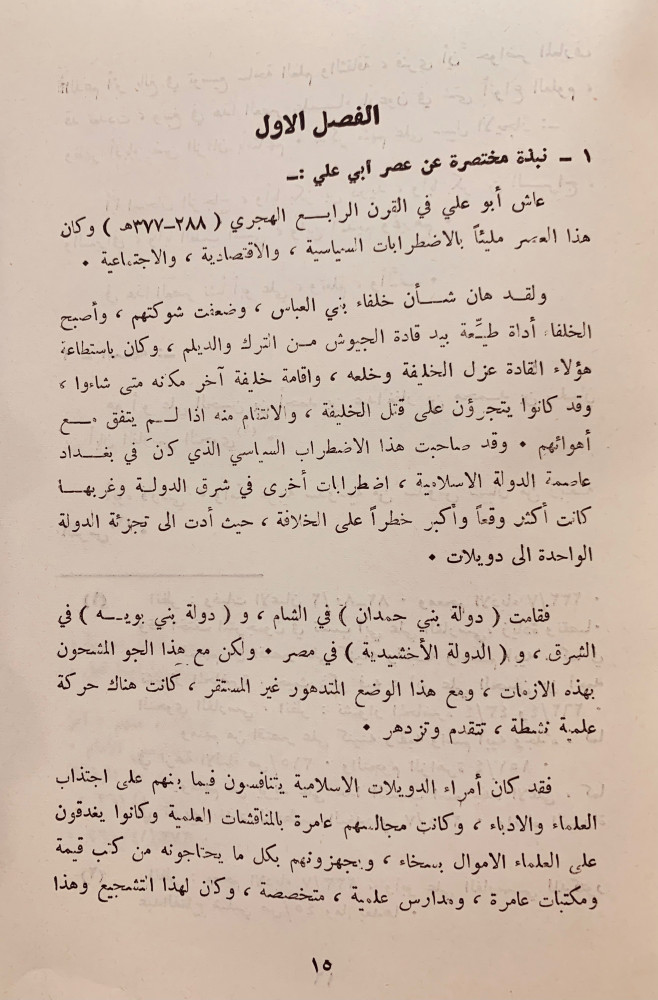 الفصل الاول
١ ـ نبذة مختصرة عن عصر أبي علي :ـ
عاش أبو علي في القرن الرابـــع الهجري ( ٢٨٨ــ٣٧٧هـ ) وكان
هذا العصر مليئاً بالاضطرابات السياسية ، والاقتصادية ، والاجتماعية ٠
ولقــد هان شـــأن خلفاء بني العباس ، وضعفت شوكتهم ، وأصبح
الخلفاء أداة طيِّعة بيد قادة الجيوش مــن الترك والديلم ، وكان باستطاعة
هؤلاء القادة عزل الخليفة وخلعه ، واقامة خليفة آخر مكانه متى شاءوا ،
وقد كانوا يتجرؤن على قتل الخليفة ، والانتقام منه اذا لــم يتفق مــع
أهوائهم ٠ وقد صاحبت هذا الاضطراب السياسي الذي كان في بغــداد
عاصمة الدولة الاسلامية ، اضطرابات أخرى في شرق الدولــة وغربهــا
كانت أكثر وقعاً وأكبر خطراً على الخلافة ، حيث أدت الى تجزئة الدولة
الواحدة الى دويلات ٠
فقامت ( دولة بني حمدان ) في الشام ، و ( دولة بني بويــه ) في
الشرق ، و ( الدولة الأخشيدية ) في مصر ٠ ولكن مع هذا الجو المشحون
بهذه الازمات ، ومع هذا الوضع المتدهور غير المستقر ، كانت هناك حركة
علمية نشطة ، تتقدم وتزدهر ٠
فقد كان أمراء الدويلات الاسلامية يتنافسون فيما بينهم على اجتذاب
العلماء والادباء ، وكانت مجالسهم عامرة بالمناقشات العلمية وكانوا يغدقون
على العلماء الاموال بسخاء ، ويجهزونهم بكل ما يحتاجونه من كتب قيمة
ومكتبات عامرة ، ومدارس علمية ، متخصصة ، وكان لهذا التشجيع وهذا
١٥